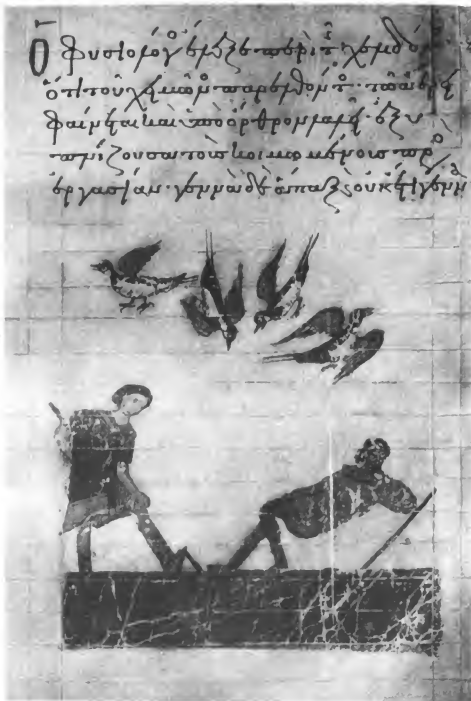 Ὁ φυσιολόγ ἔλεξε περὶ τ χελιδό
ὅτι τοῦ χειμῶν παρελθόντ τῶ
φαίνεται καὶ ὑπὸ ὄρθρον λαλεῖ ἐξυ
πνίζουσα τοὺς κοιμωμένους πρ
ἐργασίαν · γεννᾶ δὲ ἅπαξ οὐκέτι γενν